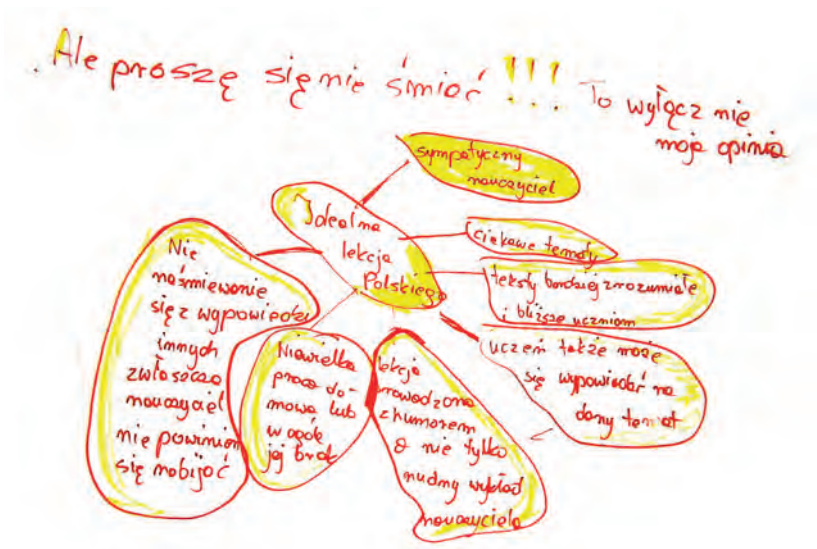 Ale proszę się nie śmiać !!! To wyłącz nie
moja opinia
sympatyczny
nauczyciel
Idealna
lekcja
Polskiego
ciekawe tematy
teksty bardziej zrozumiałe
i bliższe uczniom
uczeń także może
się wypowiedzieć na
dany temat
lekcja
prowadzona
z humorem
a nie tylko
nudny wykład
nauczyciela
Niewielka
praca do-
mowa lub
w ogóle
jej brak
Nie
naśmiewanie
się z wypowiedzi
innych
zwłaszcza
nauczyciel
nie powinien
się nabijać